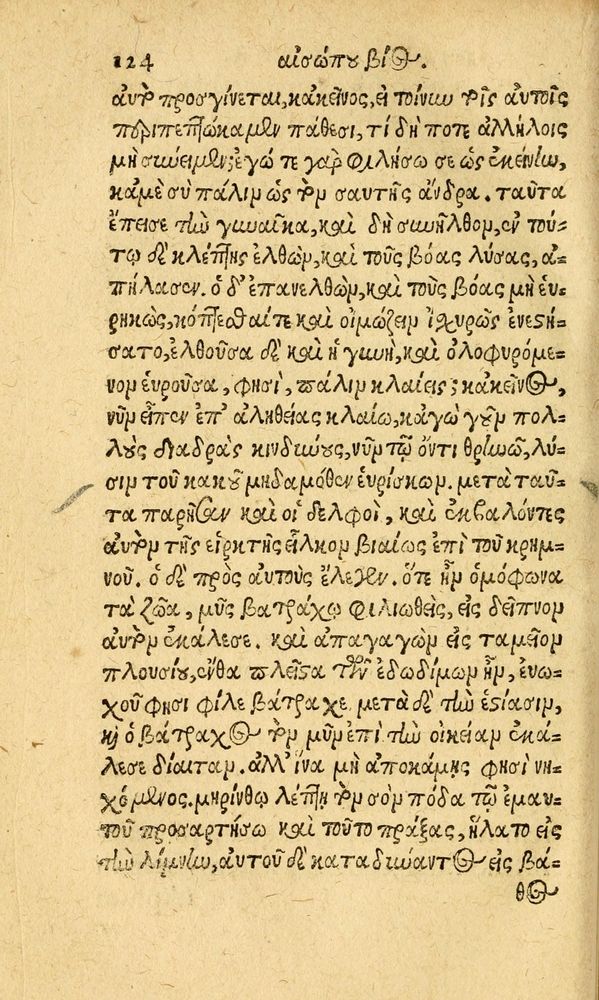 124 αἰσώπου βίος.
αὐτὸν προσγίνεται, κἀκεῖνος, εἰ τοίνυν τοῖς αὐτοῖς
περιπεπτώκαμεν πάθεσι, τί δή ποτε ἀλλήλοις
μὴ σύνειμεν; ἐγώ τε γὰρ φιλήσω σε ὡς ἐκείνην,
κἀμὲ σὺ πάλιν ὡς τὸν σαυτῆς ἄνδρα. ταῦτα
ἔπεισε τὴν γυναῖκα, καὶ δὴ συνῆλθον, ἐν τού-
τῳ δὲ κλέπτης ἐλθὼν, καὶ τοὺς βόας λύσας, ἀ-
πήλασεν. ὁ δ' ἐπανελθὼν, καὶ τοὺς βόας μὴ εὑ-
ρηκὼς, κόπτεσθαί τε καὶ οἰμώζειν ἰχυρῶς ἐνεστή-
σατο, ἐλθοῦσα δὲ καὶ ἡ γυνὴ, καὶ ὀλοφυρόμε-
νον εὑροῦσα, φησὶ, πάλιν κλαίεις; κἀκεῖνος,
νῦν εἶπεν ἐπ' ἀληθείας κλαίω, κἀγὼ γοῦν πολ-
λοὺς διαδρὰς κινδύνους, νῦν τῷ ὄντι θρηνῶ, λύ-
σιν τοῦ κακοῦ μηδαμόθεν εὑρίσκων. μετὰ ταῦ-
τα παρῆσαν καὶ οἱ δελφοὶ, καὶ ἐκβαλόντες
αὐτὸν τῆς εἱρκτῆς εἷλκον βιαίως ἐπὶ τοῦ κρημ-
νοῦ. ὁ δὲ πρὸς αὐτοὺς ἔλεγεν. ὅτε ἦν ὁμόφωνα
τὰ ζῶα, μῦς βατράχῳ φιλιωθεὶς, εἰς δεῖπνον
αὐτὸν ἐκάλεσε. καὶ ἀπαγαγὼν εἰς ταμεῖον
πλουσίου, ἔνθα πλεῖστα τῶν ἐδωδίμων ἦν, εὐω-
χοῦ φησι φίλε βάτραχε. μετὰ δὲ τὴν ἑστίασιν,
καὶ ὁ βάτραχος τὸν μῦν ἐπὶ τὴν οἰκείαν ἐκά-
λεσε δίαιταν. ἀλλ' ἵνα μὴ ἀποκάμῃς φησὶ νη-
χόμενος. μηρίνθῳ λέπτῃ τὸν σὸν πόδα τῷ ἐμαυ-
τοῦ προσαρτήσω καὶ τοῦτο πράξας, ἥλατο εἰς
τὴν λίμνην, αὐτοῦ δὲ καταδύναντος εἰς βά-
θος